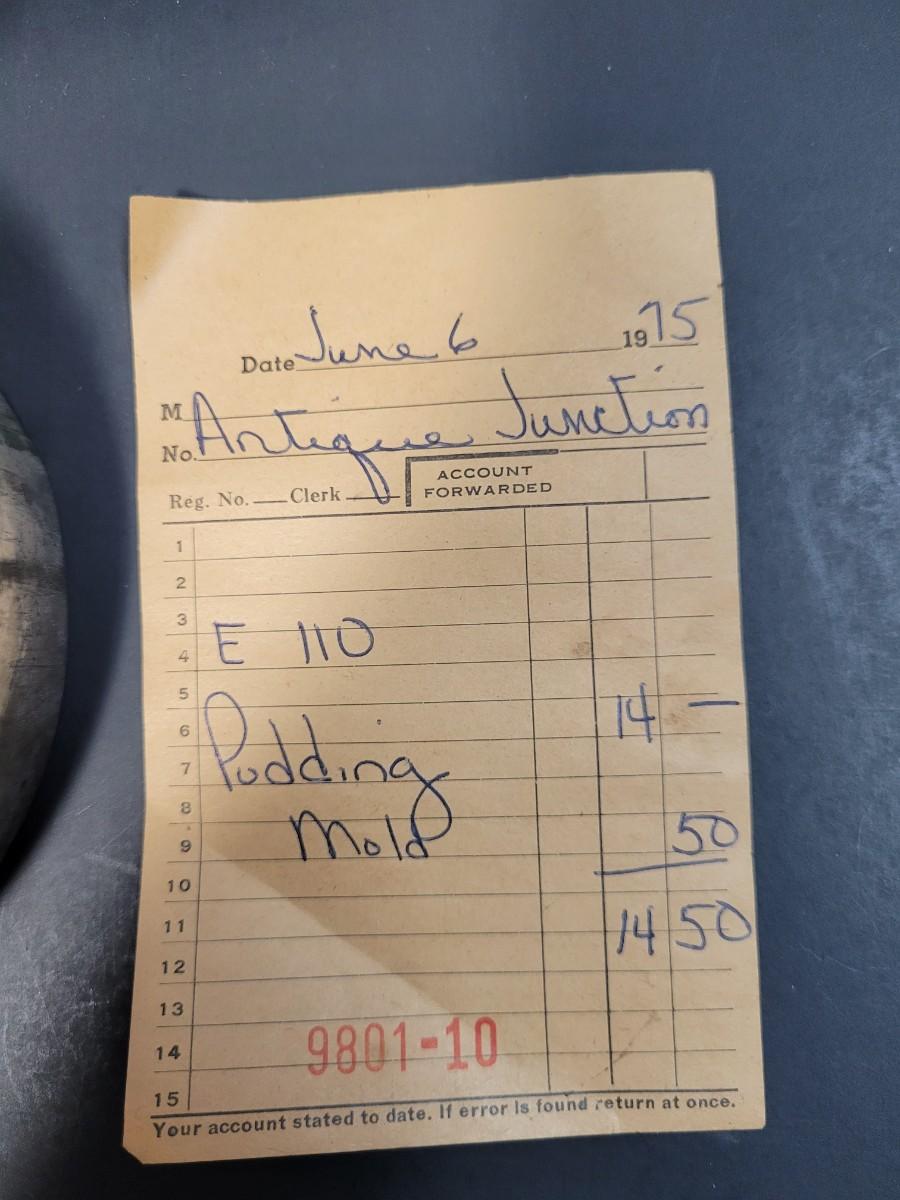 Date June 6 1975
M
No. Antique Junction
Reg. No. Clerk ACCOUNT FORWARDED
1
2
3
4 E 110
5
6 14 –
7 Pudding
8
9 Mold 50
10
11 14 50
12
13
14 9801-10
15
Your account stated to date. If error is found return at once.